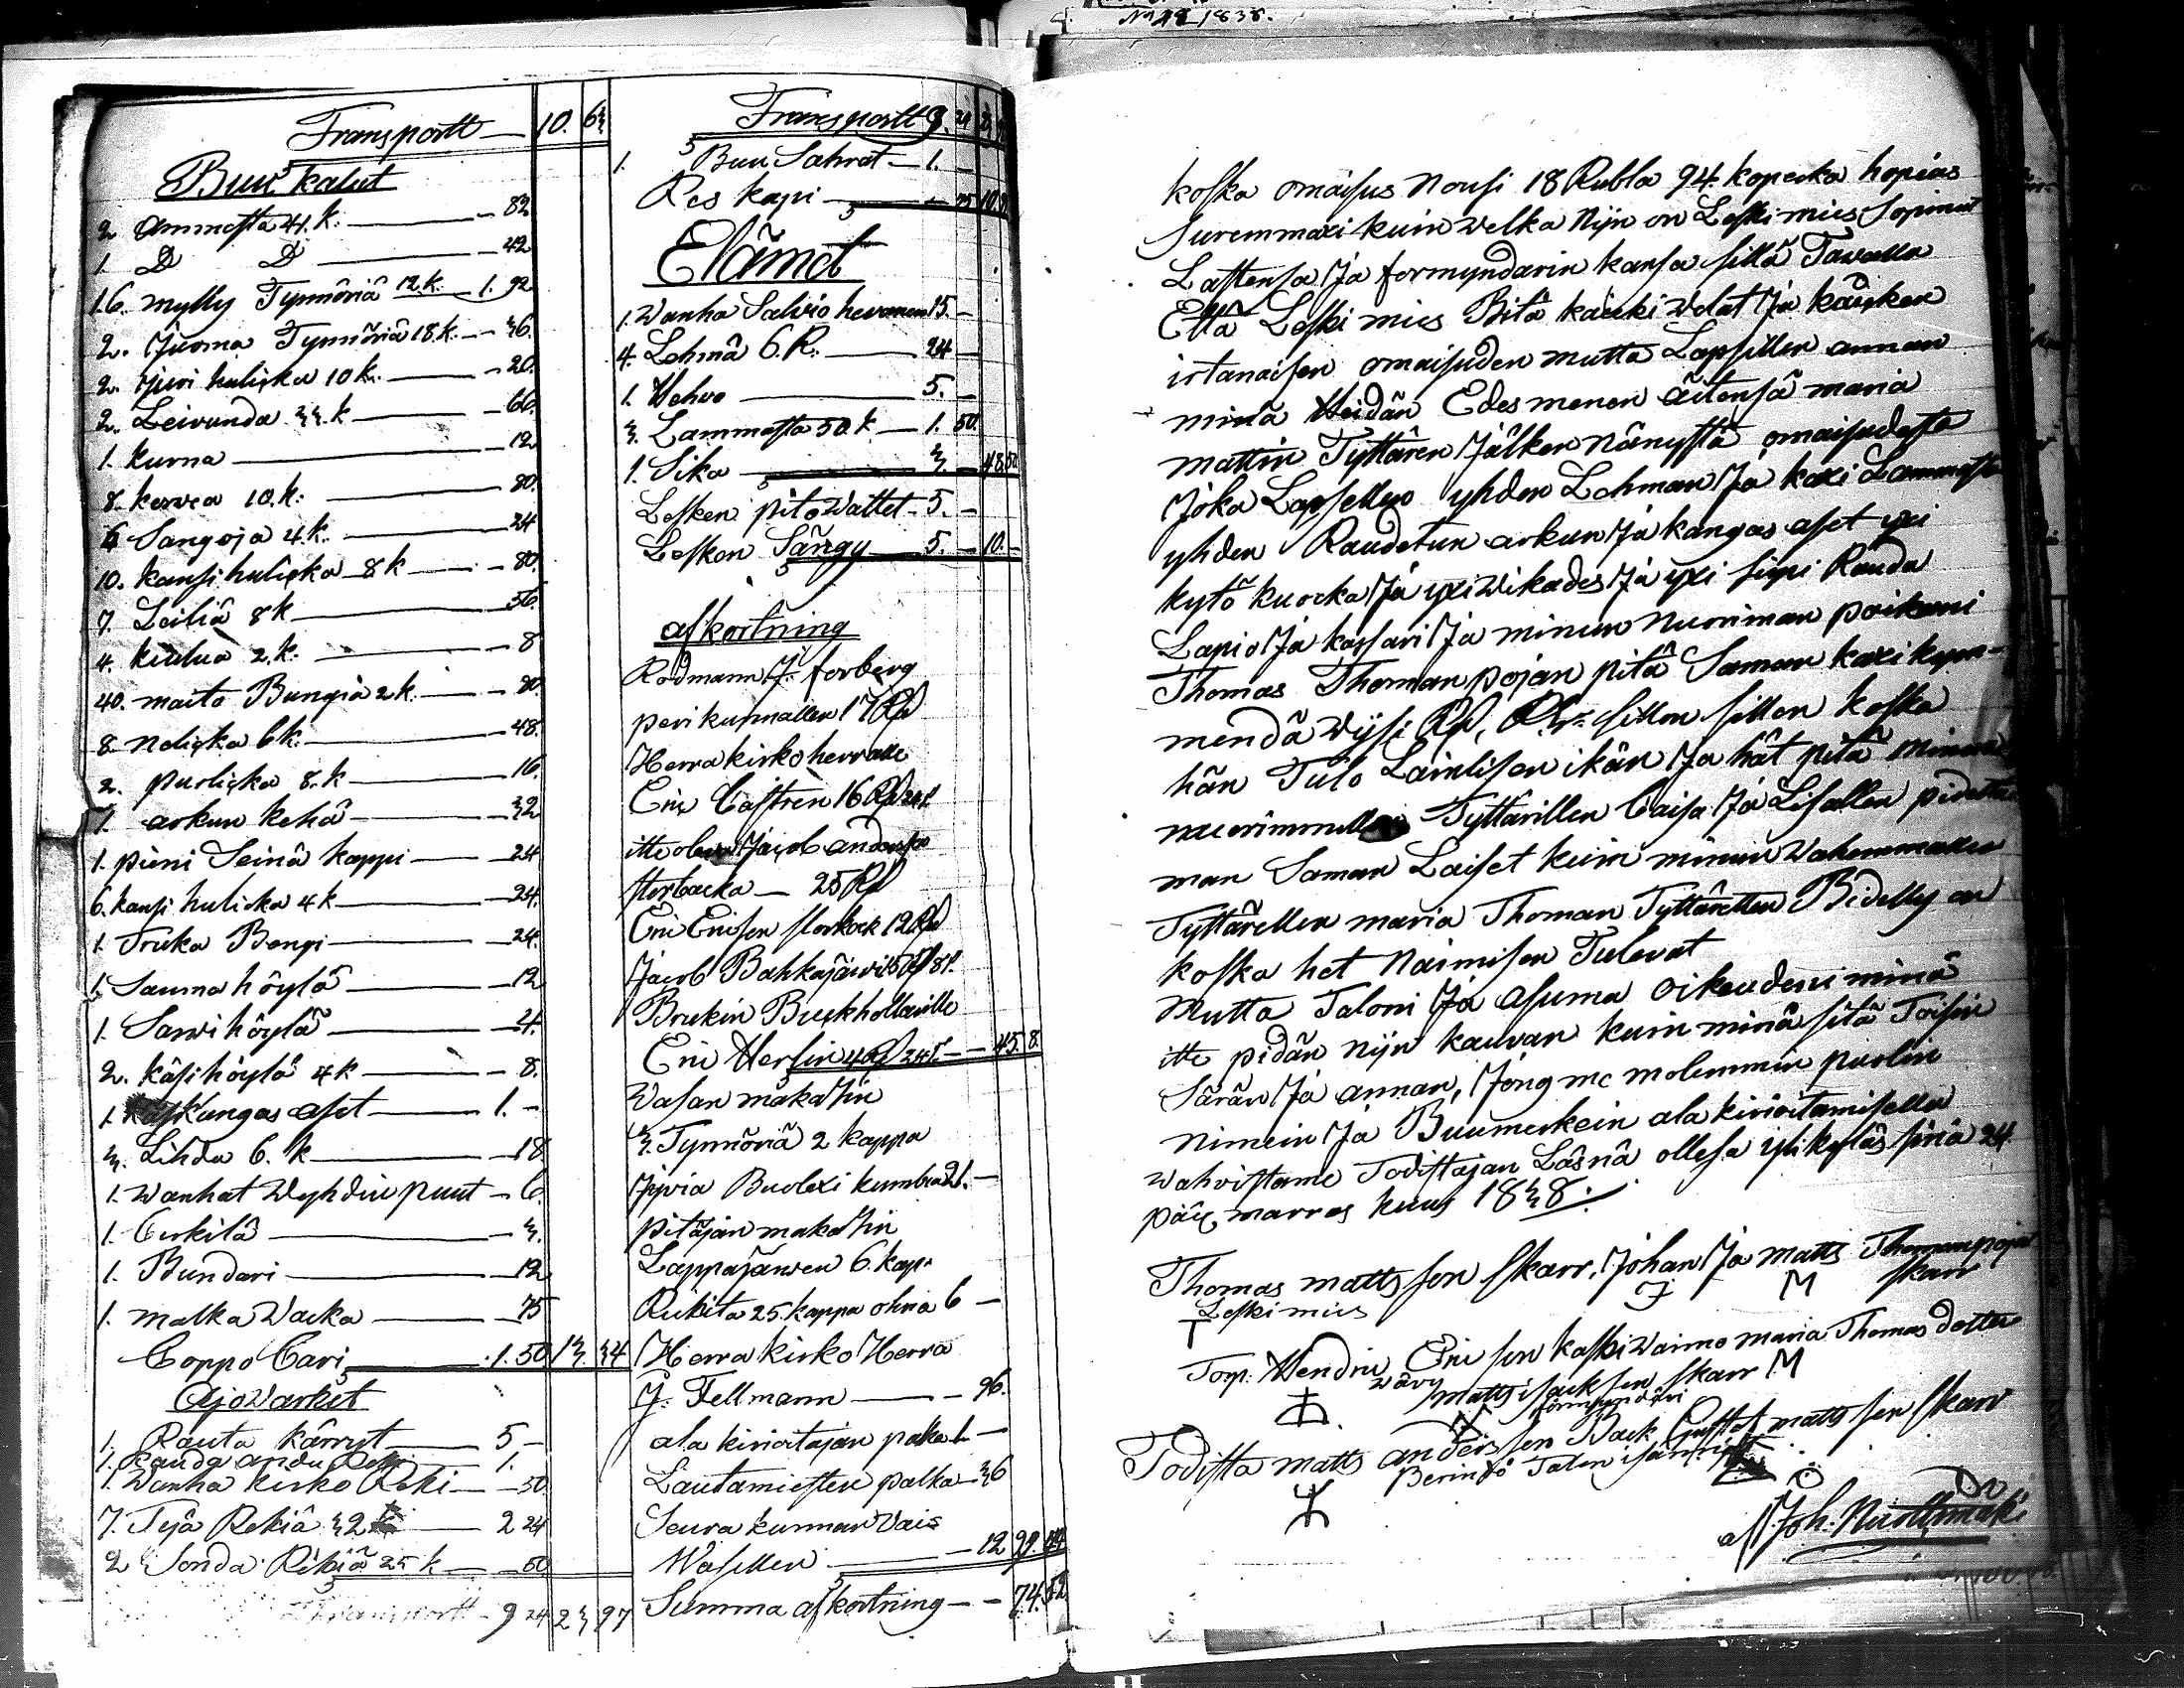 No 28 1838.
Transportt — 10. 63
Buu kalut
2 Ammesta 41. k. — 82
1. D D — 42
16. mylly Tynnöriä 12 k. — 1. 92
2. Juoma Tynnöriä 18 k. — 36.
2. juri kulicka 10 k. — 20.
2. Leivunda 33. k — 66.
1. kurna — 12
8. kerwea 10. k. — 80.
6 Sangoja 4. k. — 24
10. kansi hulicka 8 k — 80.
7. Leiliä 8 k — 56.
4. kiulua 2. k. — 8
40. maito Bungia 2 k. — 80.
8. nelicka 6 k. — 48.
2. puolicka 8. k — 16.
1. arkun kehä — 32
1. pieni Seinä kappi — 24
6. kansi hulicka 4 k — 24.
1. Truka Bengi — 24.
1. Sauma höylä — 12
1. Sarwi höylä — 4.
2. käsi höylä 4 k — 8.
1. kangas aset — 1. -
3. Lihda 6. k — 18
1. wanhat Wyhdin puut — 6.
1. Cirkilä — 3.
1. Bundari — 12
1. malka Wacka — 75
Coppo Cari — 1. 50 13. 34
Ajo Warket
1. Rauta kärryt — 5 -
1. Rauda andu Reki — 1.
1. Wanha kirko Reki — 50
7. Tejä Rekiä 32 k — 2 24
2 Sonda Rekiä 25 k — 50
Transportt — 9 24 23 97
Transportt 9. 24
1. Buu Sahrat — 1. —
Res kapi — 75
Elämet
1. Wanha Salvio hevonen 15. —
4. Lehmä 6. R. — 24 —
1. Hehvo — 5. —
3. Lammasta 50. k — 1. 50.
1. Sika — 3 — 48. 50
Lesken pito Wattet — 5. —
Lesken Sängy — 5. — 10. —
afkortning
Rodmann J. forberg
peri kunnallen 17 Rd
Herra kirko herralle
Eric Castren 16 Rd 24 s.
itte olewa Jacob anders
storbacka — 25 Rd
Eric Ericsson storkock 12 Rd
Jacob Bahkajärwi 5 Rd 8 s.
Brukin Buckhollarille
Eric Herlin 4 Rd 24 s. — 45. 8.
Wasan makasin
3. Tynnöriä 2 kappa
Jyviä Buolexi kumbia 21. —
pitäjän makasin
Lappajärwen 6. kap.
Rukita 25. kappa ohria 6 —
Herra kirko Herra
J. Fellmann — 96.
ala kirioitajan palka 1. —
Lautamiesten palka — 36
Seura kunnan Vais
Wasellen — 12 29. 44
Summa afkortning — 74. 52
koska omaisus nousi 18 Rubla 94. kopecka hopias
Suremmaxi kuin welka Nijn on Leski mies Sopinut
Lastensa Ja formyndarin kansa sillä Tavalla
Että Leski mies Bitä kaicki welat Ja kaicken
irtanaisen omaisuden mutta Lapsillen annan
minä Heidän Edes menen äitensä maria
mattin Tyttären Jälken nänystä omaisudesta
Joka Lapsellen yhden Lehman Ja kaxi Lammasta
yhden Raudetun arkun Ja kangas aset yxi
kytö kuocka Ja yxi wikades Ja yxi sirpi Rauda
Lapio Ja kassari Ja minun nuoriman poikani
Thomas Thoman pojan pitä Saman kaxi kym-
mendä wijsi Rd, sillon sillen koska
hän Tulo Lainlisen ikän Ja hät pitä minun
nuorimmille Tyttärillen Caisa Ja Lisallen pidetä
man Saman Laiset kuin minun Wahemmallen
Tyttärellen maria Thoman Tyttärellen Bidetty on
koska het Naimisen Tulevat
Mutta Taloni Ja asuma oikeudeni minä
itte pidän Nijn kauvan kuin minä sitä Toisin
Särän Ja annan, Jong me molemmin puolin
Nimein Ja Buumerkein ala kirioitamisella
wahvistame Todistajan Läsnä ollesa ylikyläs sinä 24
päiv marras kuus 1838.
Thomas matts son skarr. Johan Ja matts Thomanpojat
Leski mies J M skarr
T
Torp. Hendric Eric son kaski waimo maria Thomas dotter
wävy matts isack son skarr M
formyndäri
Todista matts anders son Back Gustaf matts son skarr
Berindö Talon isännät
af Joh. Niustemäki